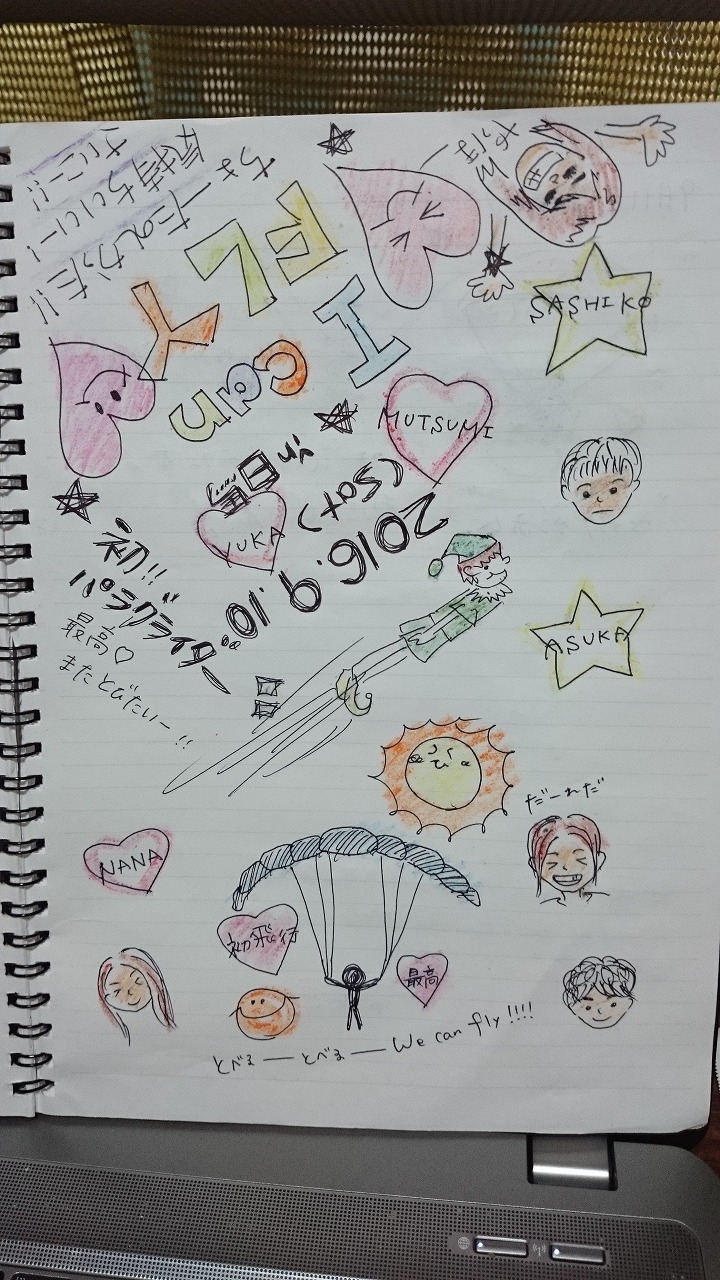 さしこ!!
気持ちいいー!
ちょーたのしかった!!
やっほー
I
can
FLY
SASHIKO
MUTSUMI
YUKA
2016.9.10
(Sat)
in
初!!
パラグライダー
最高♡
またとびたいー!!
ASUKA
だーれだ
NANA
初飛行
最高
とべるーとべるーWe can fly!!!!